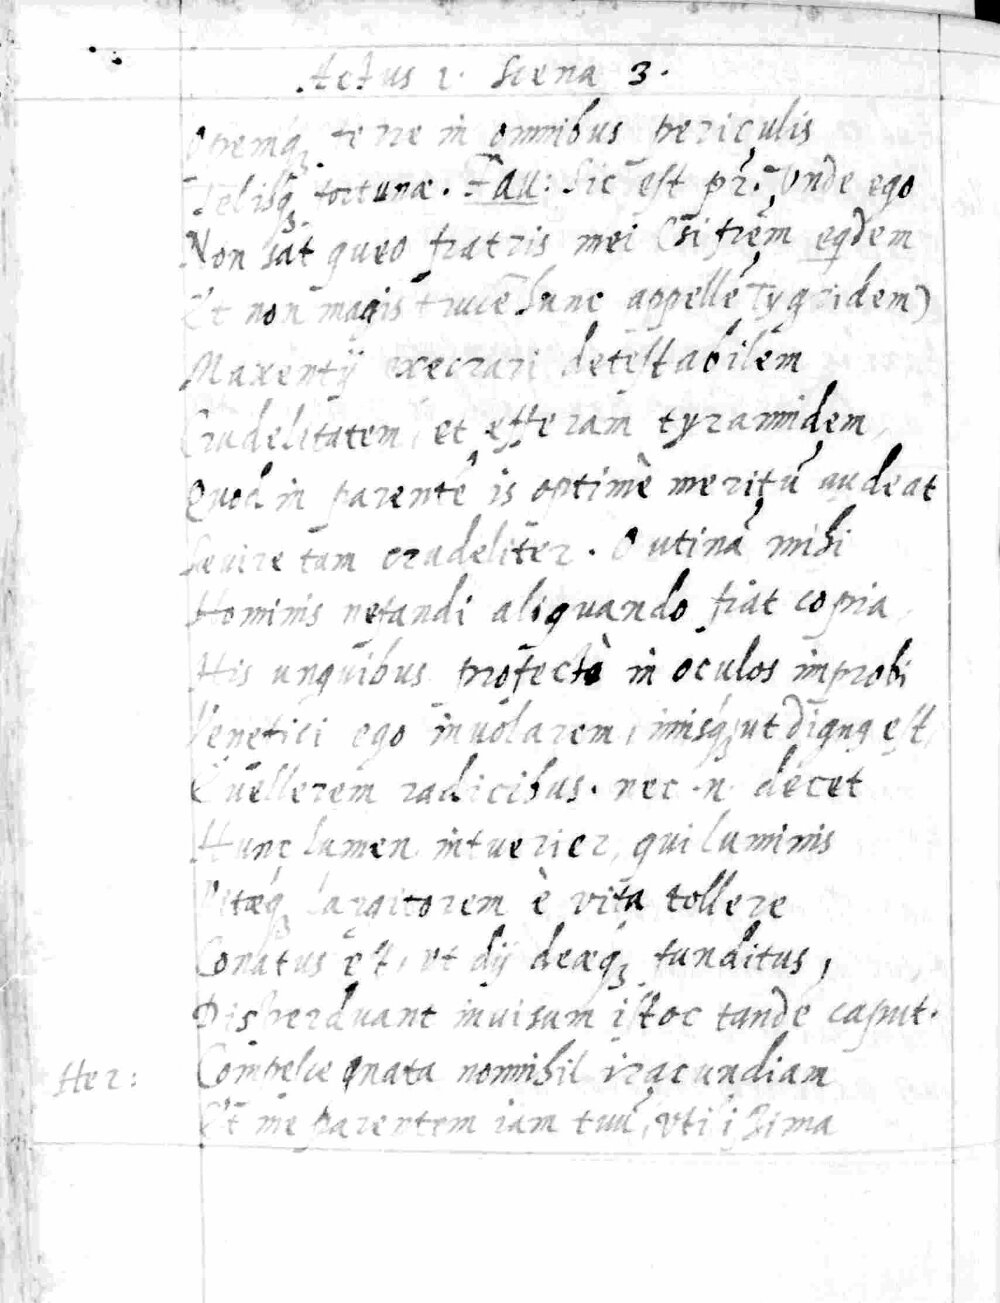 Actus 1. Scena 3.
Opemq; ferre in omnibus periculis
Telisq; fortunæ. Fau: Sic est pr̃. Vnde ego
Non sat queo fratris mei (si frem̃ eq̃dem
Et non magis trucẽ hunc appellẽ Tygridem)
Maxentij execrari detestabilem
Crudelitatem, et efferam tyrannidem,
Quod in parentẽ is optimè meritũ audeat
Sævire tam crudeliter. O utinã mihi
Hominis nefandi aliquando fiat copia,
His unguibus profectò in oculos improbi
Venefici ego involarem, imisq; ut dignꝯ est,
Evellerem radicibus. nec .n. decet
Hunc lumen intuerier, qui luminis
Vitæq; largitorem è vita tollere
Conatus est, vt dij deæq; funditus,
Disperduant invisum istoc tandẽ caput.
Her: Compesce gnata nonnihil iracundiam
Et me parentem iam tuũ, vtilissima